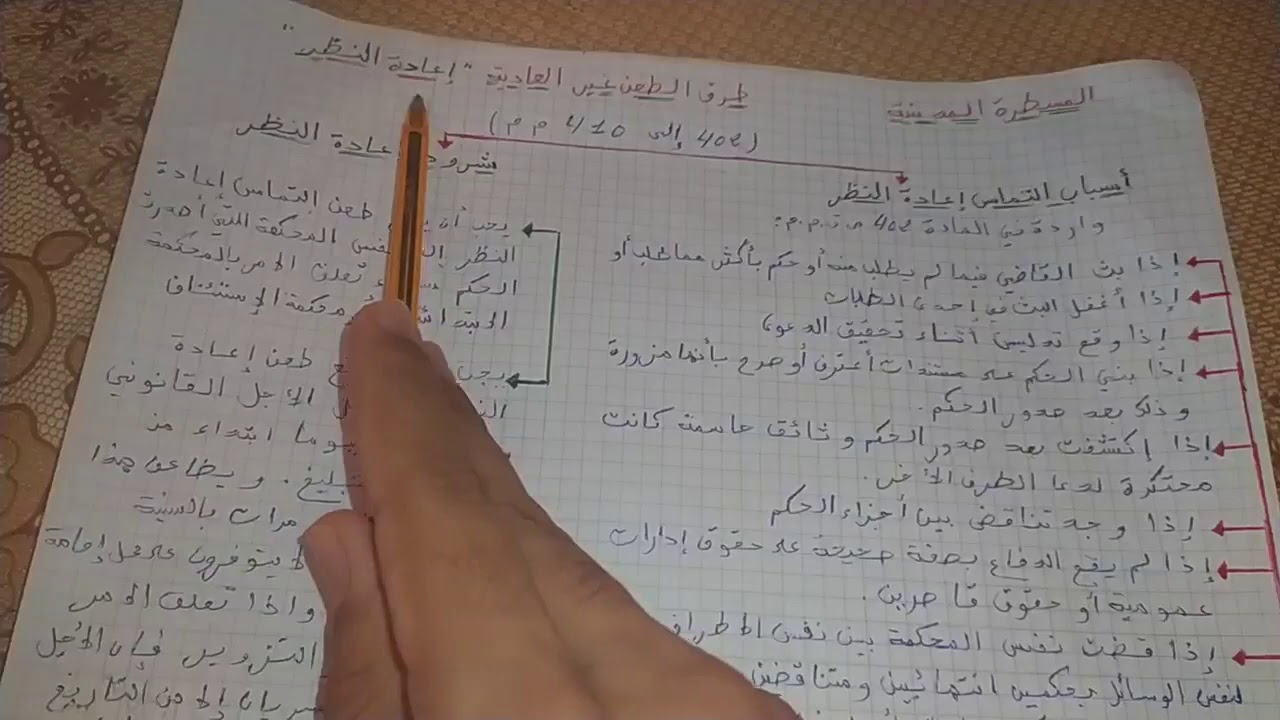 المسطرة المدنية
طرق الطعن غير العادية "إعادة النظر"
(402 إلى 410 م م)
أسباب التماس إعادة النظر
واردة في المادة 402 م.ق.م.م:
إذا بث القاضي فيما لم يطلب منه أو حكم بأكثر مما طلب أو
إذا أغفل البث في إحدى الطلبات
إذا وقع تدليس أثناء تحقيق الدعوى
إذا بني الحكم على مستندات أعترف أو صرح بأنها مزورة
وذلك بعد صدور الحكم.
إذا إكتشفت بعد صدور الحكم وثائق حاسمة كانت
محتكرة لدى الطرف الأخر.
إذا وجد تناقض بين أجزاء الحكم
إذا لم يقع الدفاع بصفة صحيحة على حقوق إدارات
عمومية أو حقوق قاصرين.
إذا قضت نفس المحكمة بين نفس الأطراف
لنفس الوسائل بحكمين انتهائيين ومتناقضين
شروط إعادة النظر
يجب أن طعن التماس إعادة
النظر نفس المحكمة التي أصدرت
الحكم تعلق الامر بالمحكمة
محكمة الإستئناف
يجب طعن إعادة
الأجل القانوني
يوما ابتداء من
ويضاعف هذا
مرات بالنسبة
لا يتوفرون على محل إقامة
واذا تعلق الامر
التزوير فإن الأجل
إلا من التاريخ